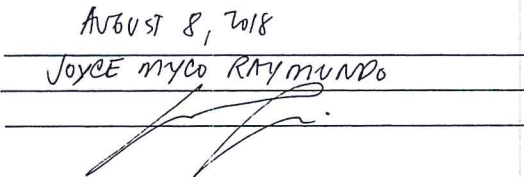 AUGUST 8, 2018
JOYCE MYCO RAYMUNDO